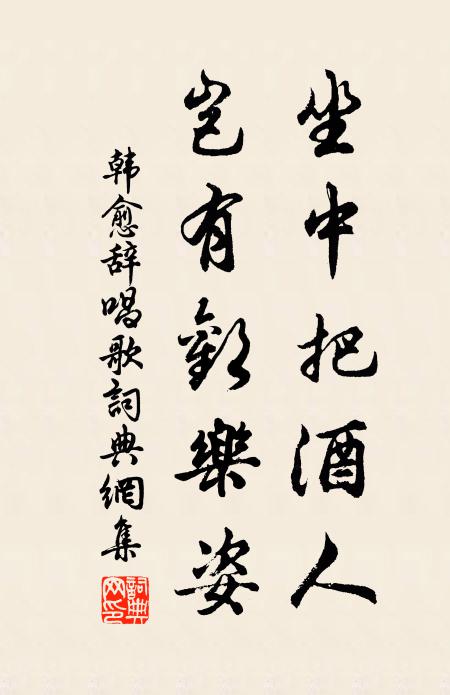 坐中把酒人
豈有歡樂姿
韩愈辞唱歌詞典網集
詞典
网印